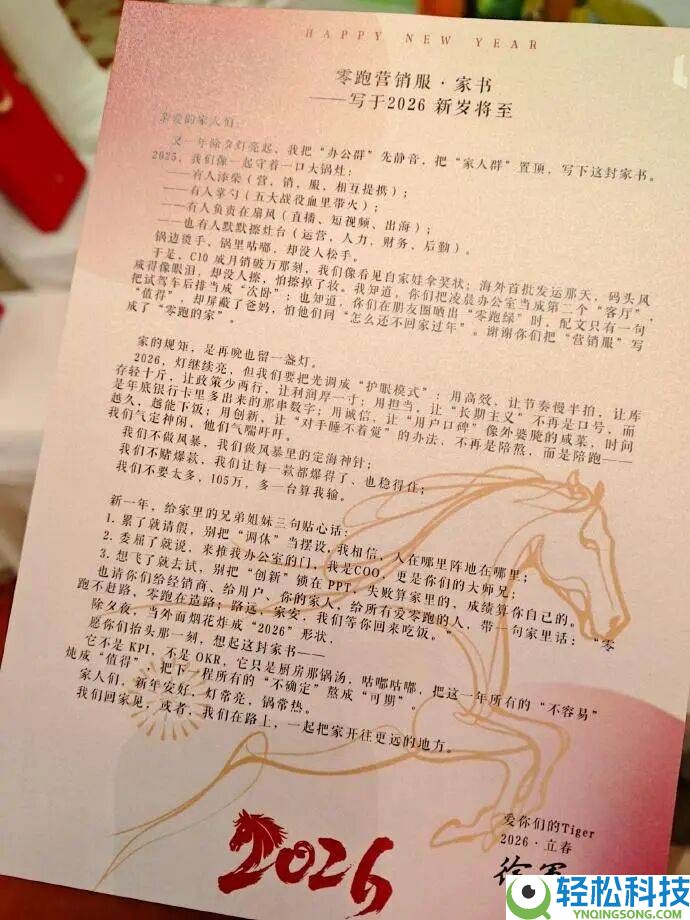 HAPPY NEW YEAR
零跑营销服·家书
——写于2026 新岁将至
亲爱的家人们：
又一年除夕灯亮起，我把“办公群”先静音，把“家人群”置顶，写下这封家书。
2025，我们像一起守着一口大锅灶：
——有人添柴（营，销，服，相互提携）；
——有人掌勺（五大战役血里带火）；
——有人负责在扇风（直播、短视频、出海）；
——也有人默默擦灶台（运营，人力，财务、后勤）。
锅边烫手，锅里咕嘟，却没人松手。
于是，C10 破月销破万那刻，我们像看见自家娃拿奖状；海外首批发运那天，码头风
咸得像眼泪，却没人擦，怕擦掉了妆。我知道，你们把凌晨办公室当成第二个“客厅”，
把试驾车后排当成“次卧”；也知道，你们在朋友圈晒出“零跑绿”时，配文只有一句
“值得”，却屏蔽了爸妈，怕他们问“怎么还不回家过年”。谢谢你们把“营销服”写
成了“零跑的家”。
家的规矩，是再晚也留一盏灯。
2026，灯继续亮，但我们要把光调成“护眼模式”：用高效，让节奏慢半拍，让库
存轻十斤，让政策少两行，让利润厚一寸；用担当，让“长期主义”不再是口号，而
是年底银行卡里多出来的那串数字；用诚信，让“用户口碑”像外婆腌的咸菜，时间
越久，越能下饭；用创新，让“对手睡不着觉”的办法，不再是陪熬，而是陪跑——
我们气定神闲，他们气喘吁吁。
我们不做风暴，我们做风暴里的定海神针；
我们不赌爆款，我们让每一款都爆得了、也稳得住；
我们不要太多，105万，多一台算我输。
新一年，给家里的兄弟姐妹三句贴心话：
1. 累了就请假，别把“调休”当摆设，我相信，人在哪里阵地在哪里；
2. 委屈了就说，来推我办公室的门，我是COO，更是你们的大师兄；
3. 想飞了就去试，别把“创新”锁在 PPT，失败算家里的，成绩算你自己的。
也请你们给经销商、给用户、你的家人，给所有爱零跑的人，带一句家里话：“零
跑不赶路，零跑在造路；路远，家安，我们等你回来吃饭。”
除夕夜，当外面烟花炸成“2026”形状，
愿你们抬头那一刻，想起这封家书——
它不是 KPI，不是 OKR，它只是厨房那锅汤，咕嘟咕嘟，把这一年所有的“不容易”
炖成“值得”，把下一程所有的“不确定”熬成“可期”。
家人们，新年安好，灯常亮，锅常热。
我们回家见，或者，我们在路上，一起把家开往更远的地方。
爱你们的Tiger
2026·立春
徐军
2026
轻松科技
YNQINGSONG.COM